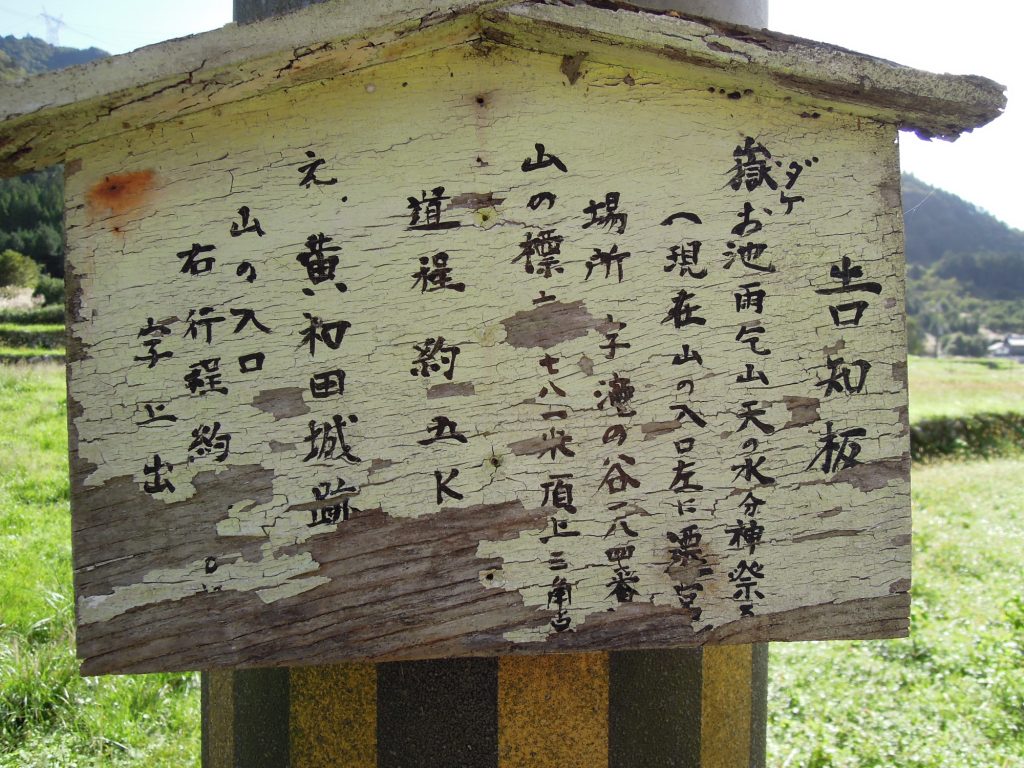 告知板
嶽お池雨乞山天の水分神祭る
ダケ
へ現在山の入口左に票
場所 字滝の谷一八四番
山の標高 七八一米頂上三角点
道程約五K
元.黄和田城跡
山の入口
右行程約
字上出